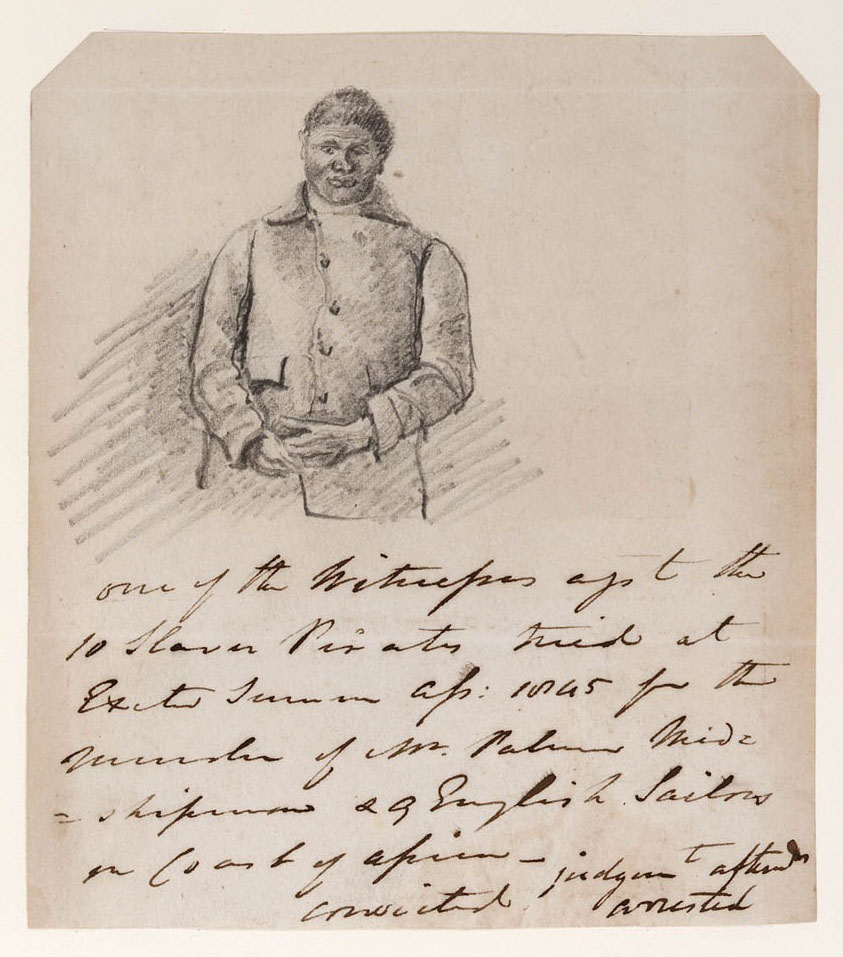 one of the Witnesses agst the
10 Slaver Pirates tried at
Exeter Summer Ass: 1845 for the
murder of Mr. Palmer Mid=
=shipman & 9 English Sailors
on Coast of Africa —
convicted judgmt afterwds
arrested